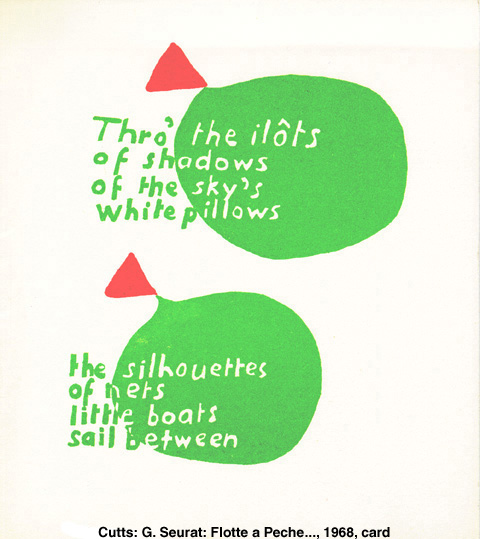 Thro' the ilôts
of shadows
of the sky's
white pillows
the silhouettes
of nets
little boats
sail between
Cutts: G. Seurat: Flotte a Peche..., 1968, card